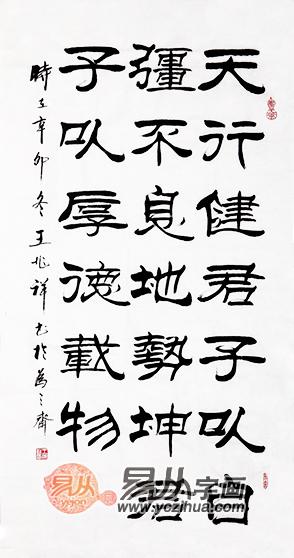 天行健君子以自
彊不息地勢坤君
子以厚德載物
時在辛卯冬王兆祥书於齋
易从
易从字画
www.yczihua.com